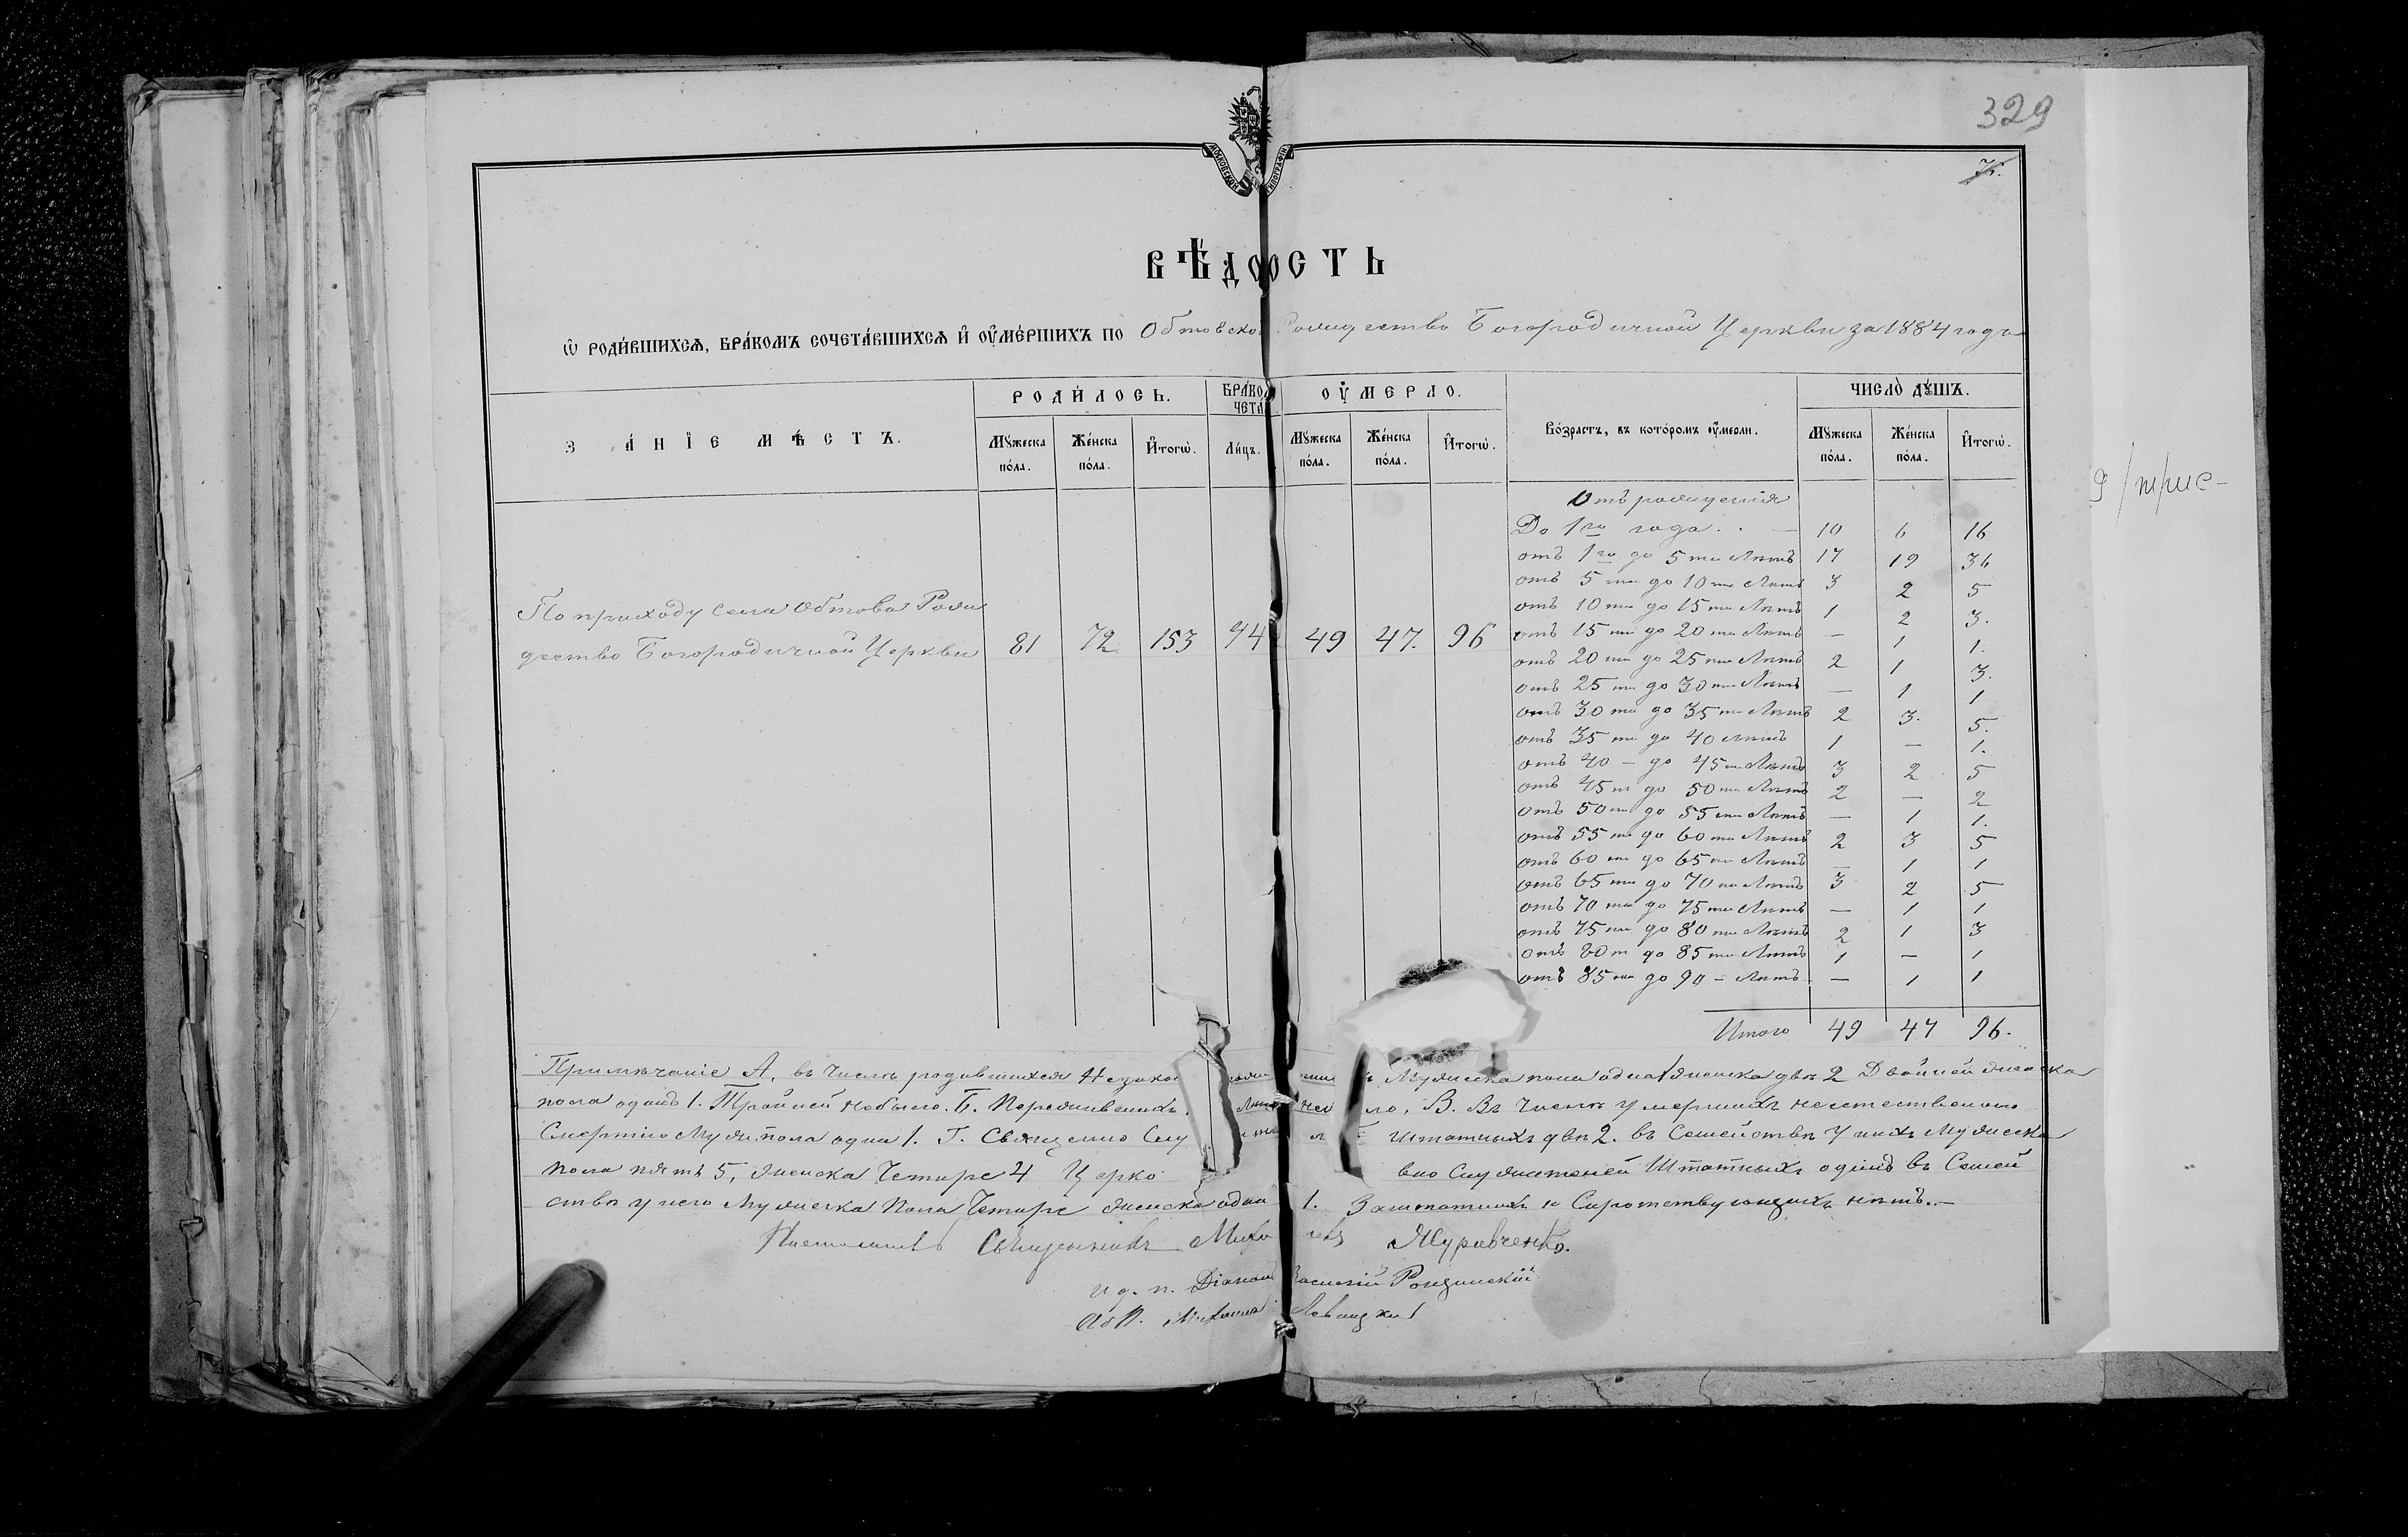 329
76.
МОСКОВСКОЙ ТИПОГРАФІИ
ВѢДОСТЬ
Ѡ РОДИ́ВШИХСѦ, БРА́КОМЪ СОЧЕТА́ВШИХСѦ И҆ ОУ҆МЕ́РШИХЪ ПО Обтовской Рождество Богородичной Церкви за 1884 годъ
З А́НІЕ МѢ́СТЪ.
РОДИ́ЛОСЬ.
БРАКО
ЧЕТА
ОУ҆МЕРЛО.
Во́зрастъ, въ кото́ромъ оу҆мерли.
ЧИСЛО̀ ДꙊ́ШЪ.
Мꙋ́жеска по́ла.
Же́нска по́ла.
И҆тогѡ̀.
Ли́цъ.
Мꙋ́жеска по́ла.
Же́нска по́ла.
И҆тогѡ̀.
Мꙋ́жеска по́ла.
Же́нска по́ла.
И҆тогѡ̀.
По приходу села Обтова Рож
дество Богородичной Церкви 81 72 153 44 49 47. 96
Отъ рожденія
До 1го года . . — 10 6 16
отъ 1го до 5ти лѣтъ 17 19 36
отъ 5ти до 10ти лѣтъ 3 2 5
отъ 10ти до 15ти лѣтъ 1 2 3.
отъ 15ти до 20ти лѣтъ — 1 1.
отъ 20ти до 25ти лѣтъ 2 1 3.
отъ 25ти до 30ти лѣтъ — 1 1
отъ 30ти до 35ти лѣтъ 2 3. 5.
отъ 35ти до 40 лѣтъ 1 — 1.
отъ 40 — до 45ти лѣтъ 3 2 5
отъ 45т до 50ти лѣтъ 2 — 2
отъ 50ти до 55ти лѣтъ — 1 1.
отъ 55ти до 60ти лѣтъ 2 3 5
отъ 60ти до 65ти лѣтъ — 1 1
отъ 65ти до 70ти лѣтъ 3 2 5
отъ 70ти до 75ти лѣтъ — 1 1
отъ 75ти до 80ти лѣтъ 2 1 3
отъ 80т до 85ти лѣтъ 1 — 1
отъ 85ти до 90 — лѣтъ — 1 1
Итого 49 47 96.
Примѣчаніе А, въ числѣ родившихся Незако Мужеска пола одна 1 женска двѣ 2 Двойней женска
пола одинъ 1. Тройней небыло. Б. В. Въ числѣ умершихъ неестественною
Смертію Муж. пола одна 1. Г. Священно Слу Штатныхъ двѣ 2. въ Семействѣ у нихъ Мужеска
пола пять 5, женска Четыре 4 Церко вно Служителей Штатныхъ одинъ въ Семей
ствѣ у него Мужеска пола Четыре женска одна 1. Заштатныхъ и Сиротствующихъ нѣтъ. —
Священникъ Миха Журавченко.
и. д. п. Діаконъ Василій